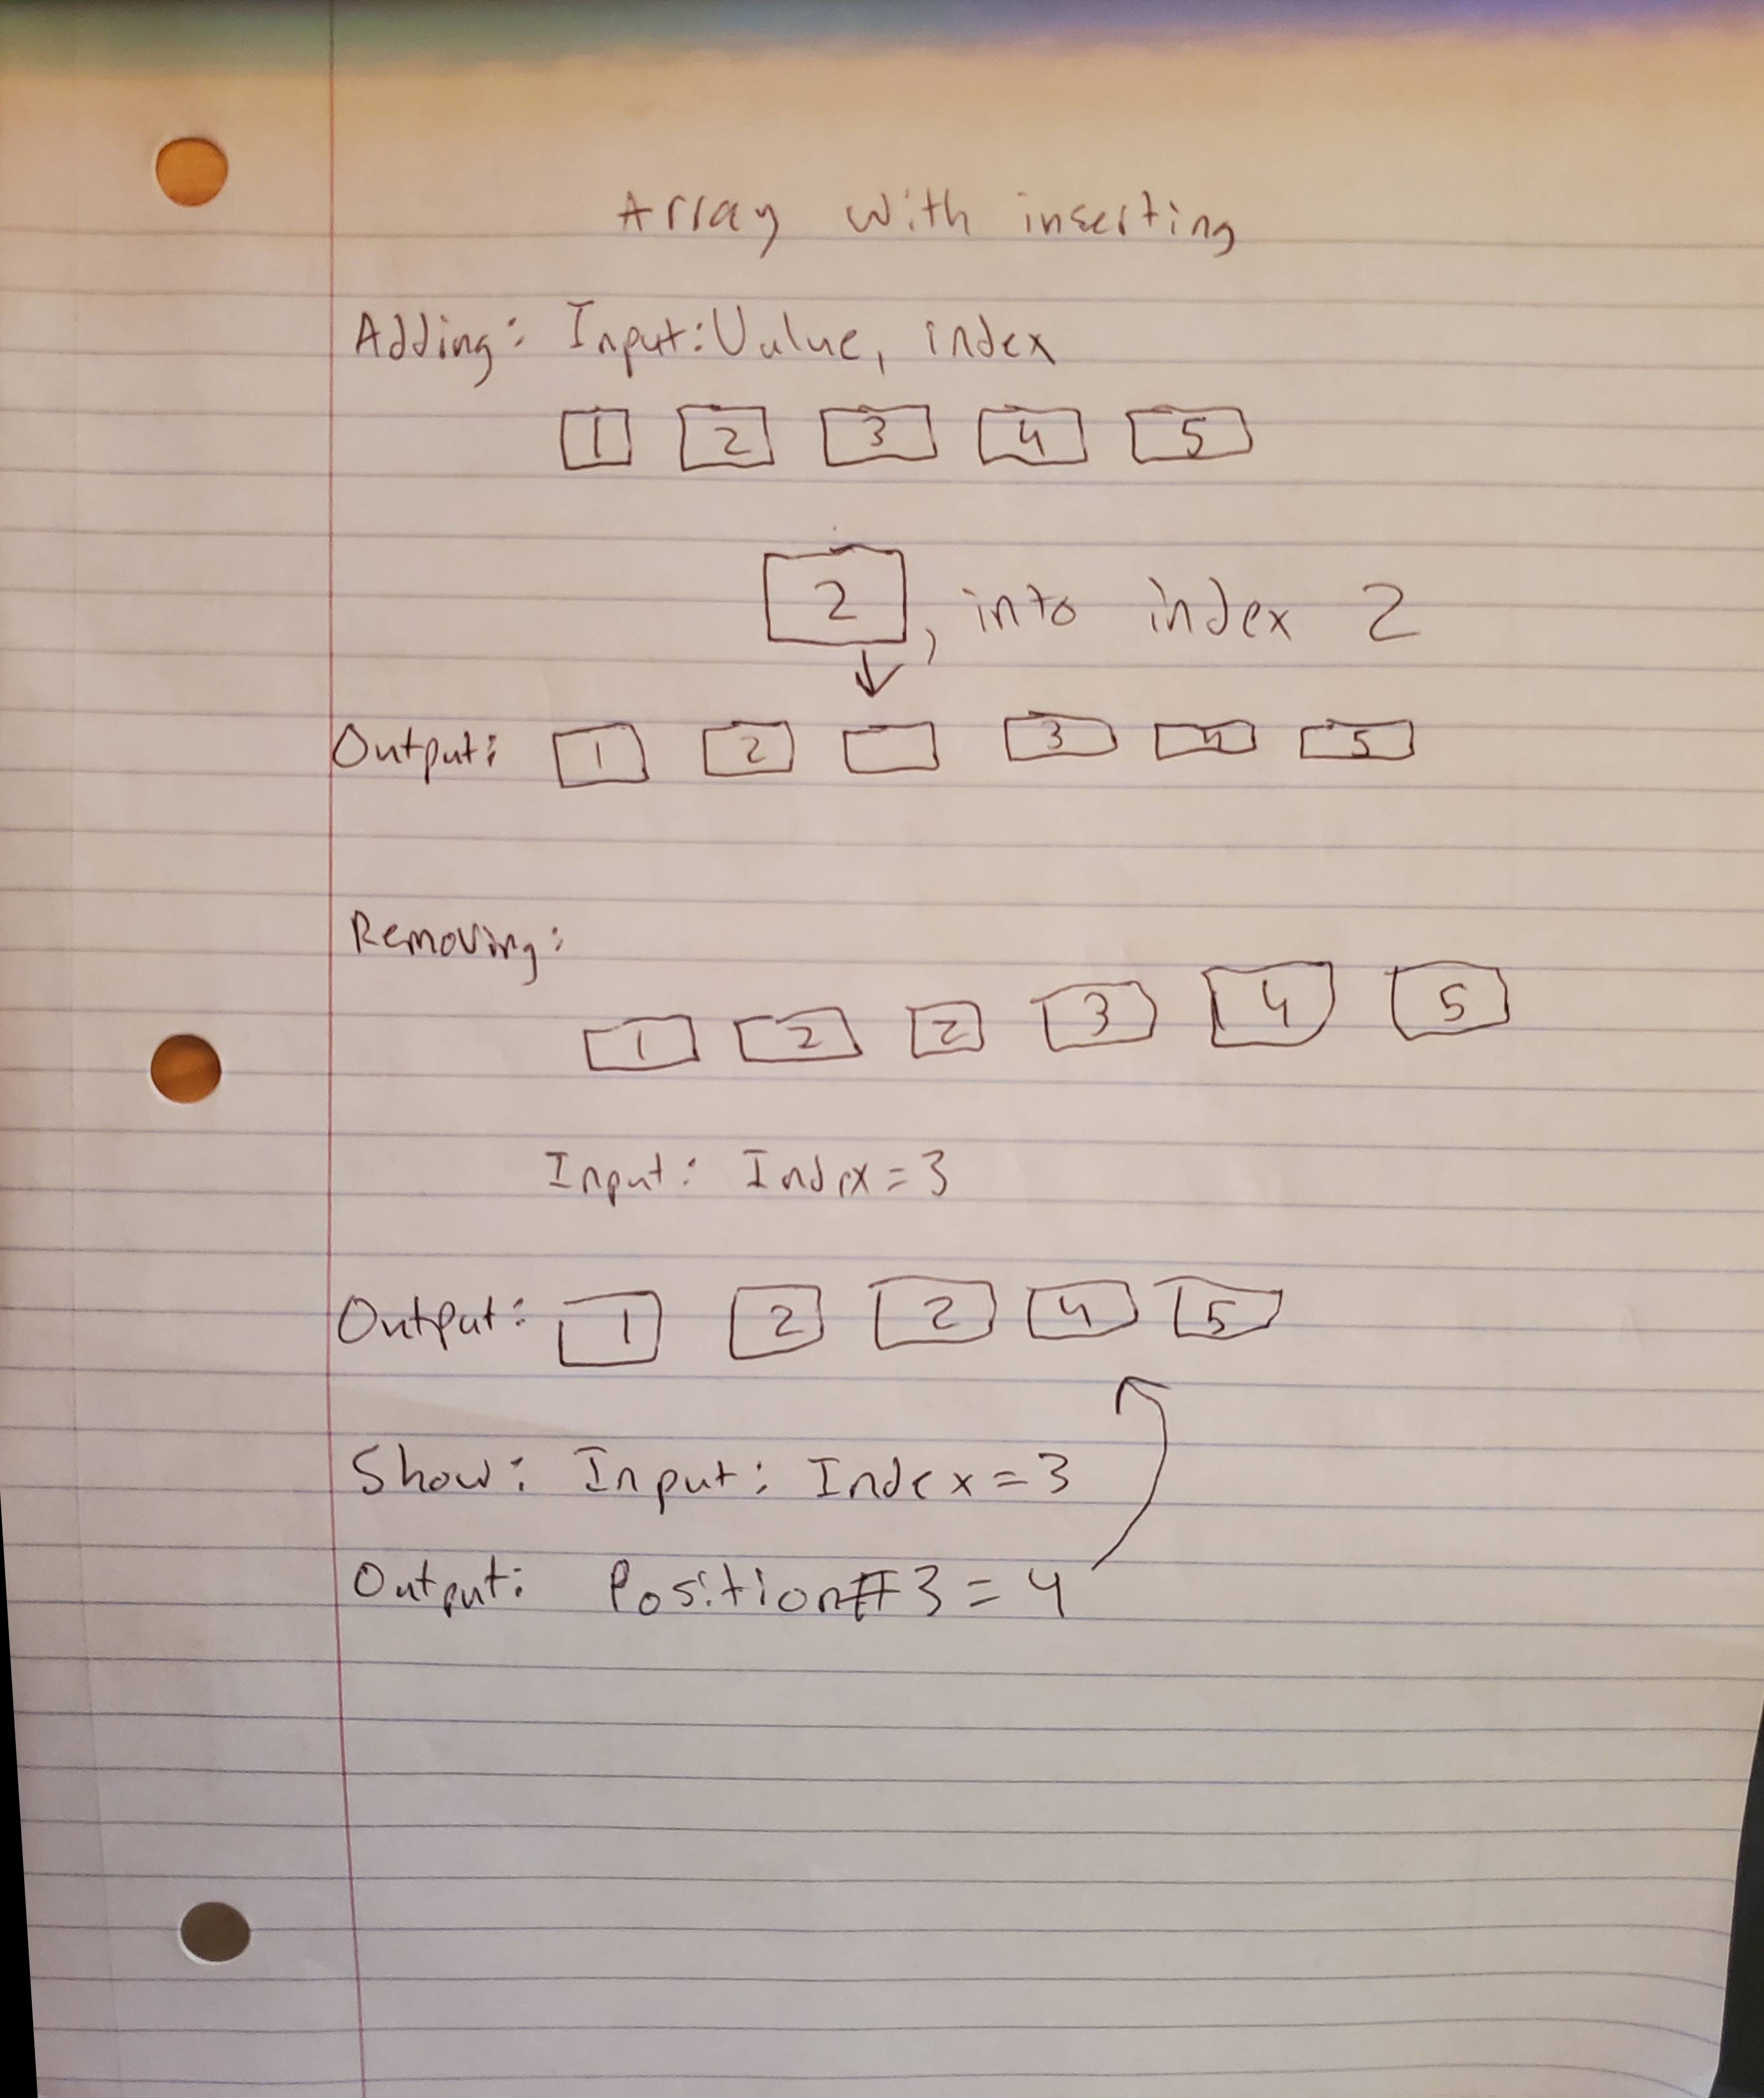 Array with inserting
Adding: Input: Value, index
1 2 3 4 5
2, into index 2
Output: 1 2 3 4 5
Removing:
1 2 2 3 4 5
Input: Index=3
Output: 1 2 2 4 5
Show: Input: Index=3
Output: Position#3=4